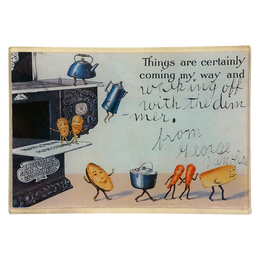 Things are certainly
coming my way and
walking off
with the dinn
mer.
from
George